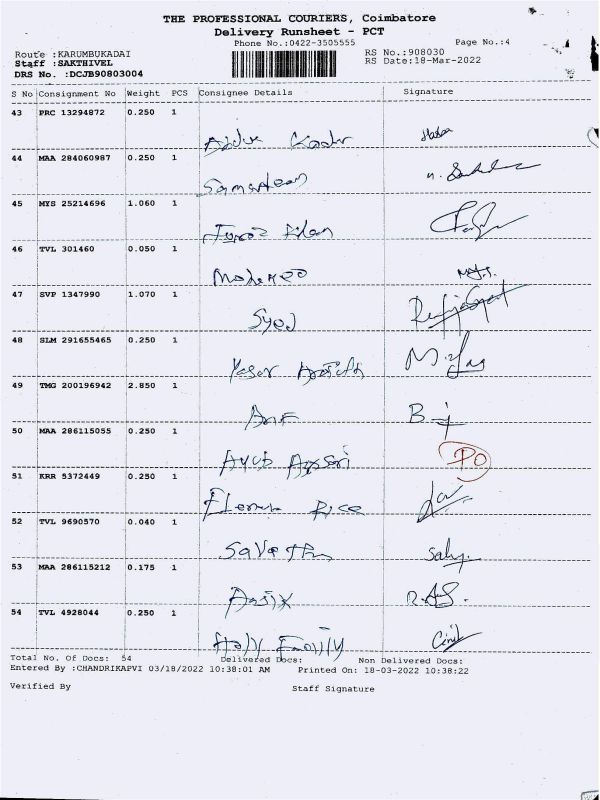 THE PROFESSIONAL COURIERS, Coimbatore
Delivery Runsheet - PCT
Phone No.:0422-3505555 Page No.:4
Route :KARUMBUKADAI RS No.:908030
Staff :SAKTHIVEL RS Date:18-Mar-2022
DRS No. :DCJB90803004
S No Consignment No Weight PCS Consignee Details Signature
43 PRC 13294872 0.250 1
Kader
44 MAA 284060987 0.250 1
45 MYS 25214696 1.060 1
46 TVL 301460 0.050 1
47 SVP 1347990 1.070 1
Syed
48 SLM 291655465 0.250 1
Yasar
49 TMG 200196942 2.850 1
50 MAA 286115055 0.250 1
Ayub PO
51 KRR 5372449 0.250 1
Rice
52 TVL 9690570 0.040 1
53 MAA 286115212 0.175 1
54 TVL 4928044 0.250 1
Holy Family
Total No. Of Docs: 54 Delivered Docs: Non Delivered Docs:
Entered By :CHANDRIKAPVI 03/18/2022 10:38:01 AM Printed On: 18-03-2022 10:38:22
Verified By Staff Signature